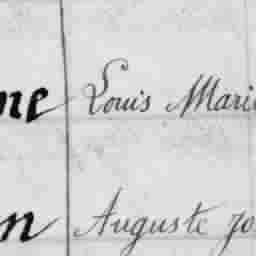 ne Louis Marie
n Auguste Jo